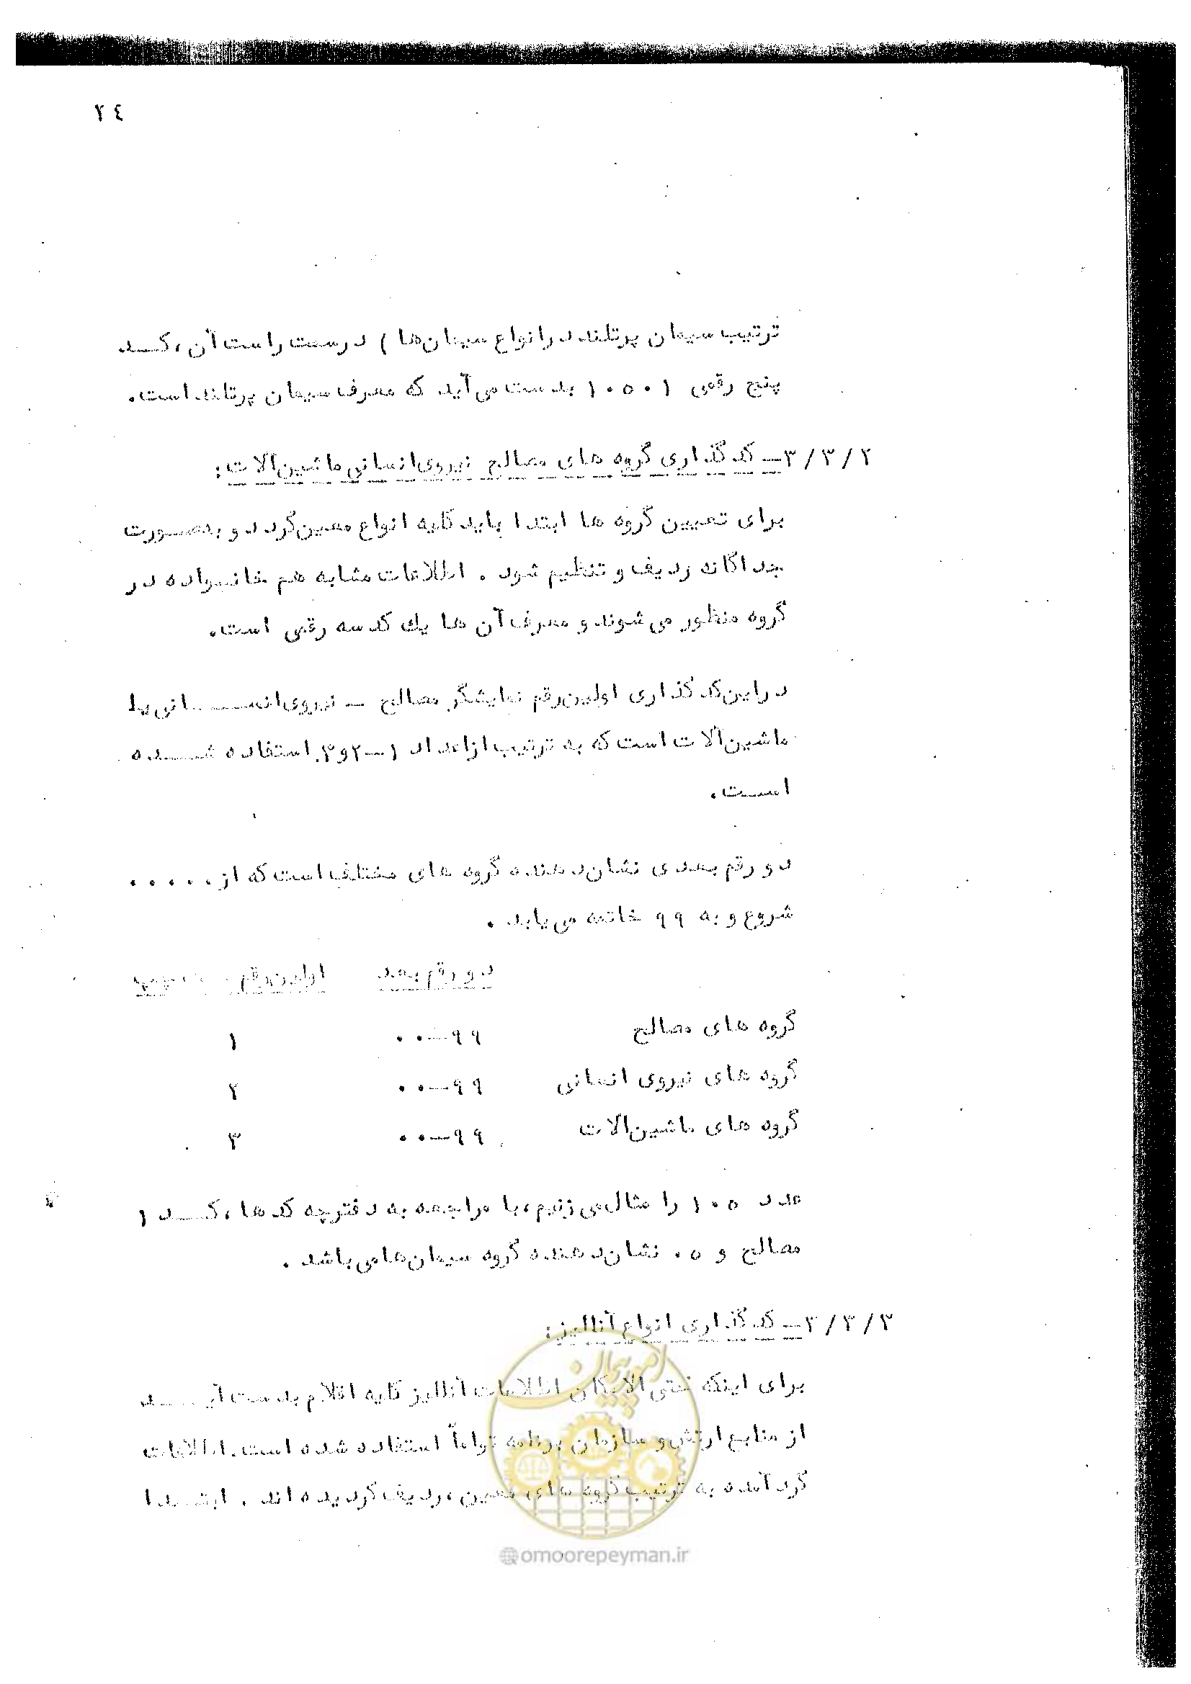 ۲٤
ترتیب سیمان پرتلند در انواع سیمان‌ها ) در سمت راست آن ، کـــد
پنج رقمی ۱۰۵۰۱ بدست می‌آید که معرف سیمان پرتلند است.
۳/۳/۲ـ کد گذاری گروه های مصالح نیروی انسانی ماشین‌آلات :
برای تعیین گروه ها ابتدا باید کلیه انواع معین گردد و بصــورت
جداگانه ردیف و تنظیم شود . اطلاعات مشابه هم خانـواده در
گروه منظور می شوند و معرف آن ها یك کد سه رقمی است.
در این کد گذاری اولین رقم نمایشگر مصالح ـ نیروی انســـانی یا
ماشین‌آلات است که به ترتیب از اعداد ۱ـ۲و۳ استفاده شـــده
اســت.
دو رقم بعدی نشان دهنده گروه های مختلف است که از ۰۰۰۰۰
شروع و به ۹۹ خاتمه می یابد .
دو رقم بعد اولین رقم
گروه های مصالح ۹۹ـ۰۰ ۱
گروه های نیروی انسانی ۹۹ـ۰۰ ۲
گروه های ماشین‌آلات ۹۹ـ۰۰ ۳
عدد ۱۰۵ را مثال می زنیم ، با مراجعه به دفترچه کدها ، کـــد ۱
مصالح و ۰۵ نشان دهنده گروه سیمان‌ها می باشد .
۳/۳/۳ـ کد گذاری انواع آنالیز :
برای اینکه حتی الامکان اطلاعات آنالیز کلیه اقلام بدست آیـــد
از منابع ارتش و سازمان برنامه تواماً استفاده شده است. اطلاعات
گرد آمده به ترتیب گروه های معین ، ردیف گردیده اند . ابتــدا
امور پیمان
@omoorepeyman.ir